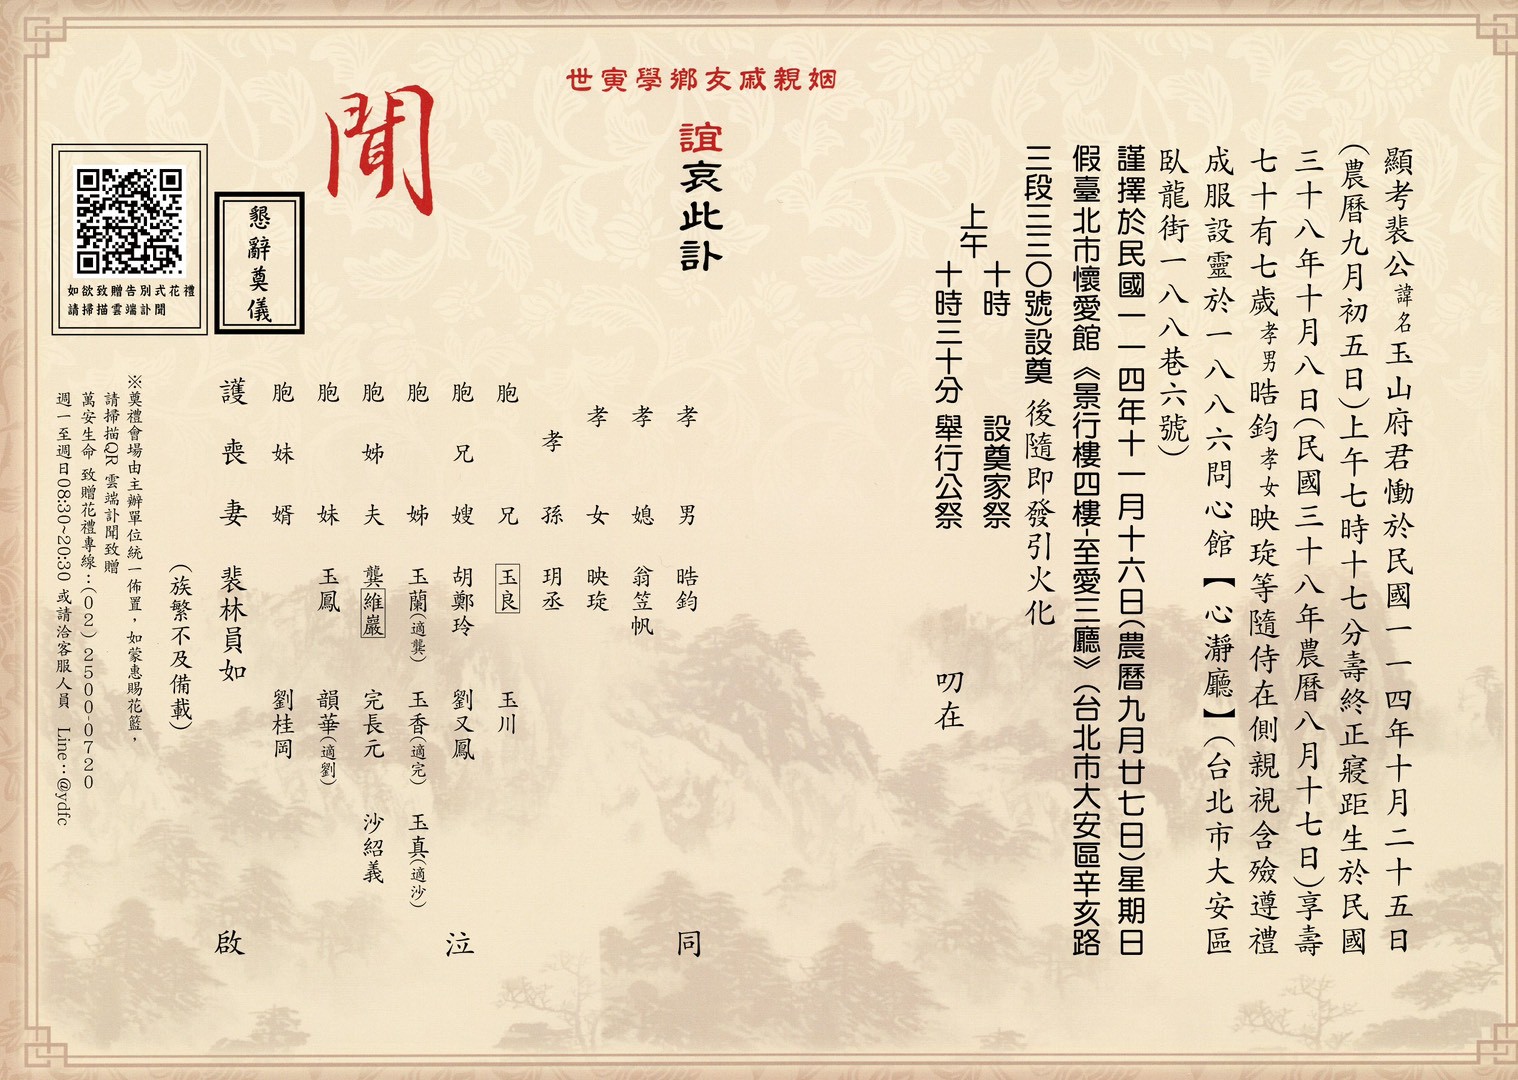 顯考裴公諱名玉山府君慟於民國一一四年十月二十五日
(農曆九月初五日)上午七時十七分壽終正寢距生於民國
三十八年十月八日(民國三十八年農曆八月十七日)享壽
七十有七歲孝男晧鈞孝女映琁等隨侍在側親視含殮遵禮
成服設靈於一八八六問心館【心瀞廳】(台北市大安區
臥龍街一八八巷六號)
謹擇於民國一一四年十一月十六日(農曆九月廿七日)星期日
假臺北市懷愛館《景行樓四樓-至愛三廳》(台北市大安區辛亥路
三段三三〇號)設奠 後隨即發引火化
上午
十時 設奠家祭
十時三十分 舉行公祭
叨在
姻親戚友鄉學寅世
誼哀此訃
聞
孝男 晧鈞
孝媳 翁笠帆
孝女 映琁
孝孫 玥丞
胞兄 玉良 玉川
胞兄嫂 胡鄭玲 劉又鳳
胞姊 玉蘭(適龔) 玉香(適完) 玉真(適沙)
胞姊夫 龔維巖 完長元 沙紹義
胞妹 玉鳳 韻華(適劉)
胞妹婿 劉桂岡
護喪妻 裴林員如
同泣啟
(族繁不及備載)
懇辭奠儀
如欲致贈告別式花禮
請掃描雲端訃聞
※奠禮會場由主辦單位統一佈置，如蒙惠賜花籃，
請掃描QR 雲端訃聞致贈
萬安生命 致贈花禮專線：(02) 2500-0720
週一至週日08:30~20:30 或請洽客服人員 Line：@ydfc